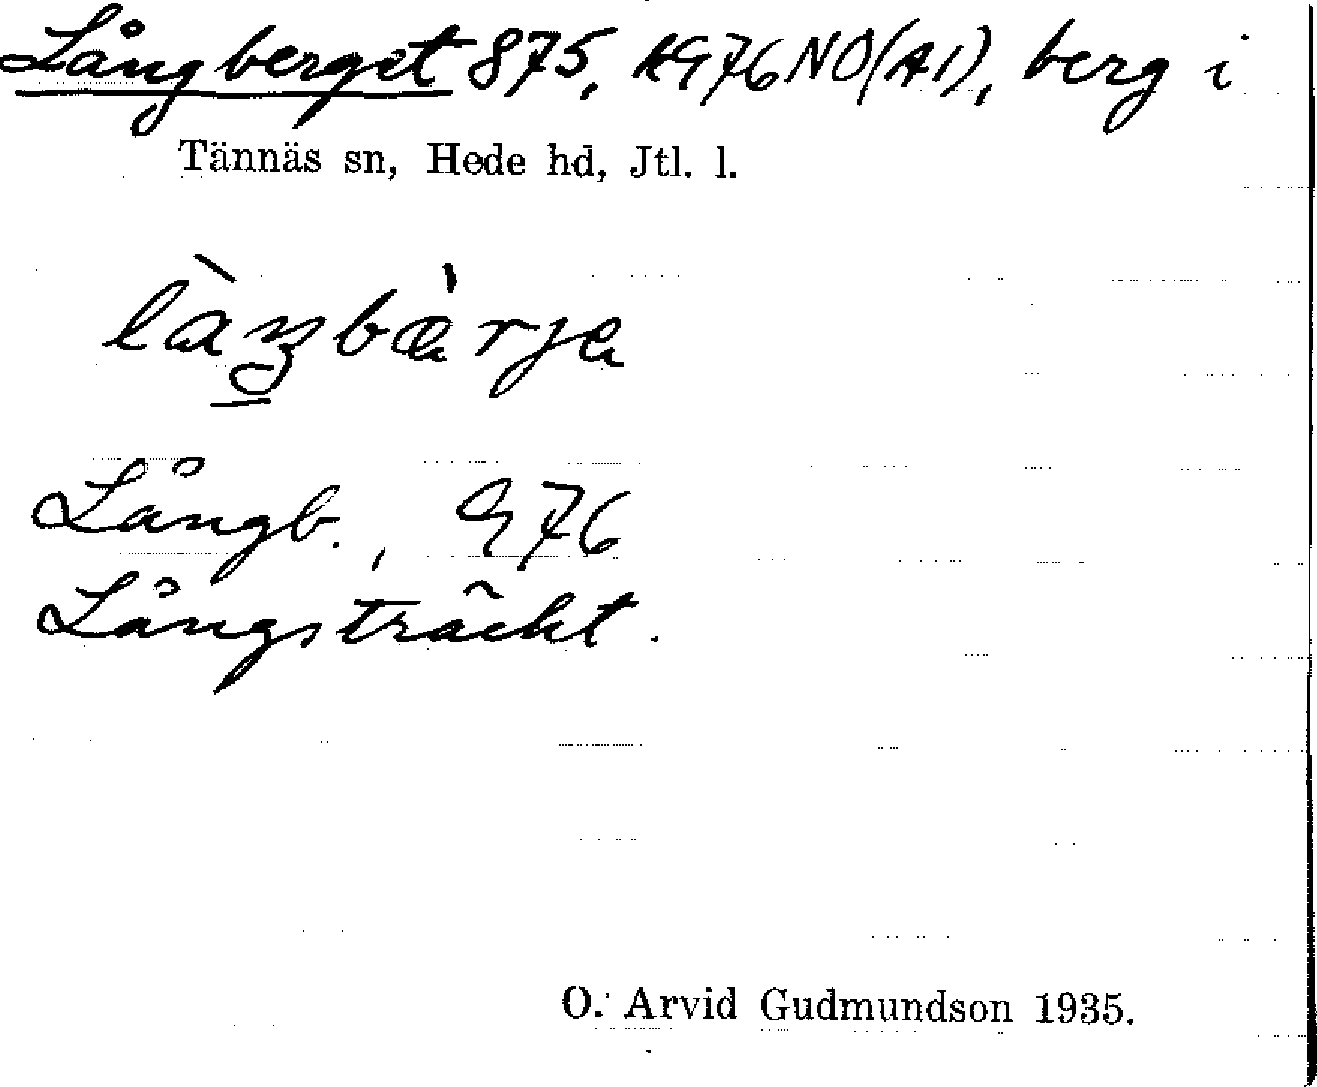 Långberget 875, K976NO(A1), berg i
Tännäs sn, Hede hd, Jtl. l.
Långb., G76
Långsträckt.
O. Arvid Gudmundson 1935.